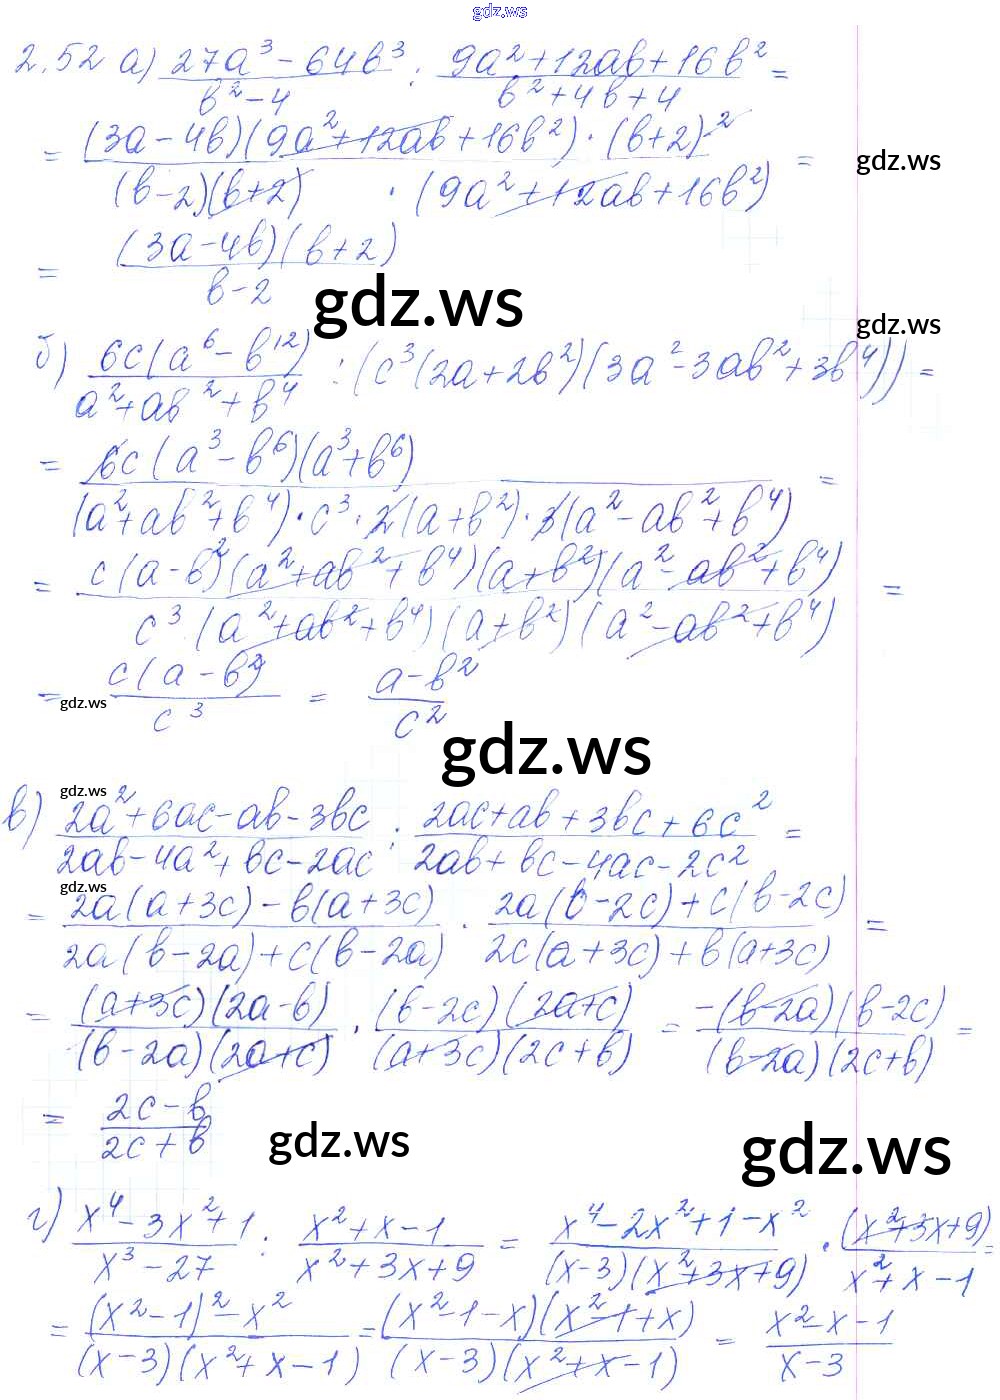 gdz.ws
2.52 а) (27a³ − 64b³)/(b² − 4) : (9a² + 12ab + 16b²)/(b² + 4b + 4) =
= ((3a − 4b)(9a² + 12ab + 16b²) · (b + 2)²)/((b − 2)(b + 2) · (9a² + 12ab + 16b²)) =
gdz.ws
= ((3a − 4b)(b + 2))/(b − 2)
gdz.ws
gdz.ws
б) (6c(a⁶ − b¹²))/(a² + ab² + b⁴) : (c³(2a + 2b²)(3a² − 3ab² + 3b⁴)) =
= (6c(a³ − b⁶)(a³ + b⁶))/((a² + ab² + b⁴) · c³ · 2(a + b²) · 3(a² − ab² + b⁴)) =
= (c(a − b²)(a² + ab² + b⁴)(a + b²)(a² − ab² + b⁴))/(c³(a² + ab² + b⁴)(a + b²)(a² − ab² + b⁴)) =
= (c(a − b²))/c³ = (a − b²)/c²
gdz.ws
gdz.ws
gdz.ws
в) (2a² + 6ac − ab − 3bc)/(2ab − 4a² + bc − 2ac) : (2ac + ab + 3bc + 6c²)/(2ab + bc − 4ac − 2c²) =
gdz.ws
= (2a(a + 3c) − b(a + 3c))/(2a(b − 2a) + c(b − 2a)) · (2a(b − 2c) + c(b − 2c))/(2c(a + 3c) + b(a + 3c)) =
= ((a + 3c)(2a − b))/((b − 2a)(2a + c)) · ((b − 2c)(2a + c))/((a + 3c)(2c + b)) = (−(b − 2a)(b − 2c))/((b − 2a)(2c + b)) =
= (2c − b)/(2c + b)
gdz.ws
gdz.ws
г) (x⁴ − 3x² + 1)/(x³ − 27) : (x² + x − 1)/(x² + 3x + 9) = (x⁴ − 2x² + 1 − x²)/((x − 3)(x² + 3x + 9)) · (x² + 3x + 9)/(x² + x − 1) =
= ((x² − 1)² − x²)/((x − 3)(x² + x − 1)) = ((x² − 1 − x)(x² − 1 + x))/((x − 3)(x² + x − 1)) = (x² − x − 1)/(x − 3)